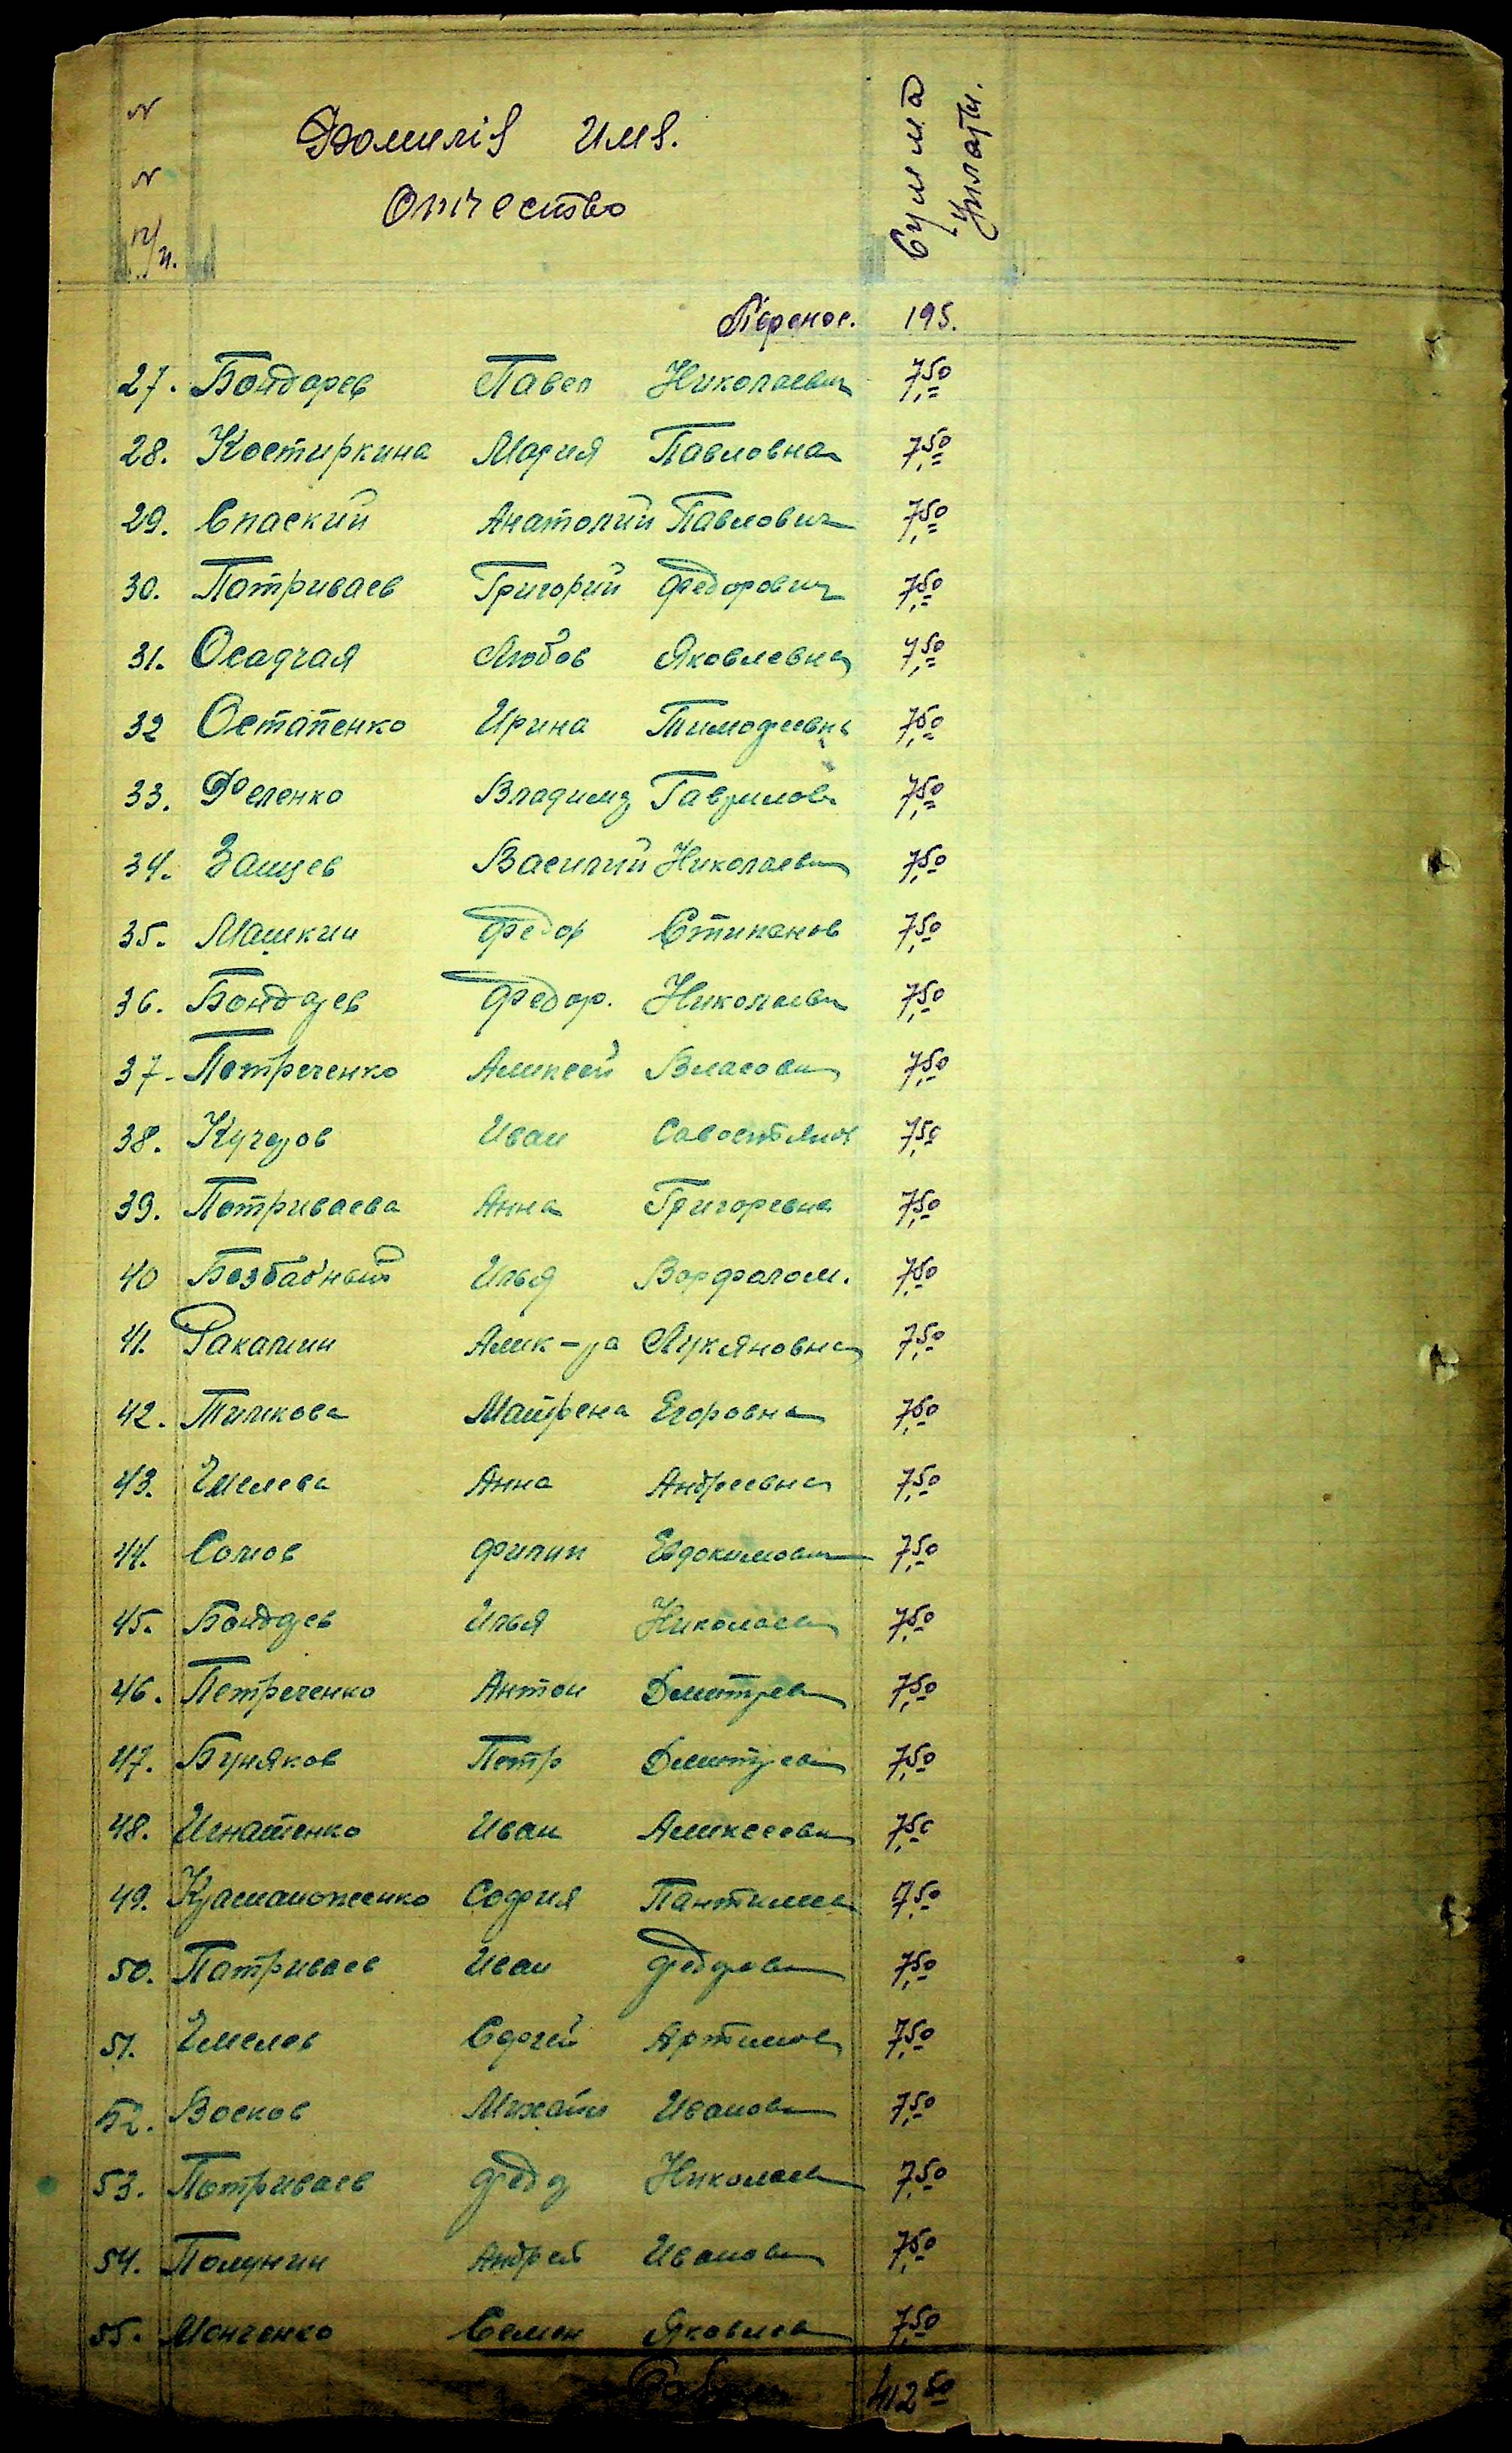 N N п/п.
Фамилія Имя.
Отчество
Сумма уплаты.
Перенос. 195.
27. Бондарев Павел Николаевич 7,50
28. Костиркина Мария Павловна 7,50
29. Спаский Анатолий Павлович 7,50
30. Патриваев Григорий Федорович 7,50
31. Осадчая Любов Яковлевна 7,50
32 Остапенко Ирина Тимофеевна 7,50
33. Феленко Владимр Гаврилов 7,50
34. Зайцев Василий Николаевич 7,50
35. Машкин Федор Стипанов 7,50
36. Бондарев Федор. Николаевич 7,50
37. Петреченко Алексей Власович 7,50
38. Кучеров Иван Савостьянов 7,50
39. Потриваева Анна Григоревна 7,50
40 Безбабный Илья Варфалом. 7,50
41. Ракатин Алик-ра Лукяновна 7,50
42. Тимкова Матрена Егоровна 7,50
43. Чмелева Анна Андреевна 7,50
44. Сомов Филип Евдокимович 7,50
45. Бондарев Илья Николаев 7,50
46. Петреченко Антон Дмитрев 7,50
47. Буняков Петр Дмитрев 7,50
48. Игнатенко Иван Алексеевич 7,50
49. София Пантилее 7,50
50. Патриваев Иван Федоров 7,50
51. Чмелев Сергей Артимов 7,50
52. Восков Михаил Иванов 7,50
53. Потриваев Федор Николаев 7,50
54. Полунин Андрей Иванов 7,50
55. Монченко Семен Яковлев 7,50
412 50